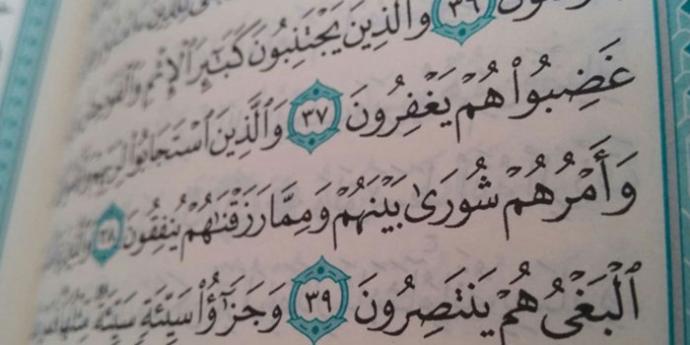 ٣٦ وَالَّذِينَ يَجْتَنِبُونَ كَبَٰٓئِرَ ٱلْإِثْمِ
غَضِبُوا۟ هُمْ يَغْفِرُونَ ٣٧ وَالَّذِينَ ٱسْتَجَابُوا۟
وَأَمْرُهُمْ شُورَىٰ بَيْنَهُمْ وَمِمَّا رَزَقْنَٰهُمْ يُنفِقُونَ ٣٨
ٱلْبَغْىُ هُمْ يَنتَصِرُونَ ٣٩ وَجَزَٰٓؤُا۟ سَيِّئَةٍ سَيِّئَةٌ مِّثْلُهَا